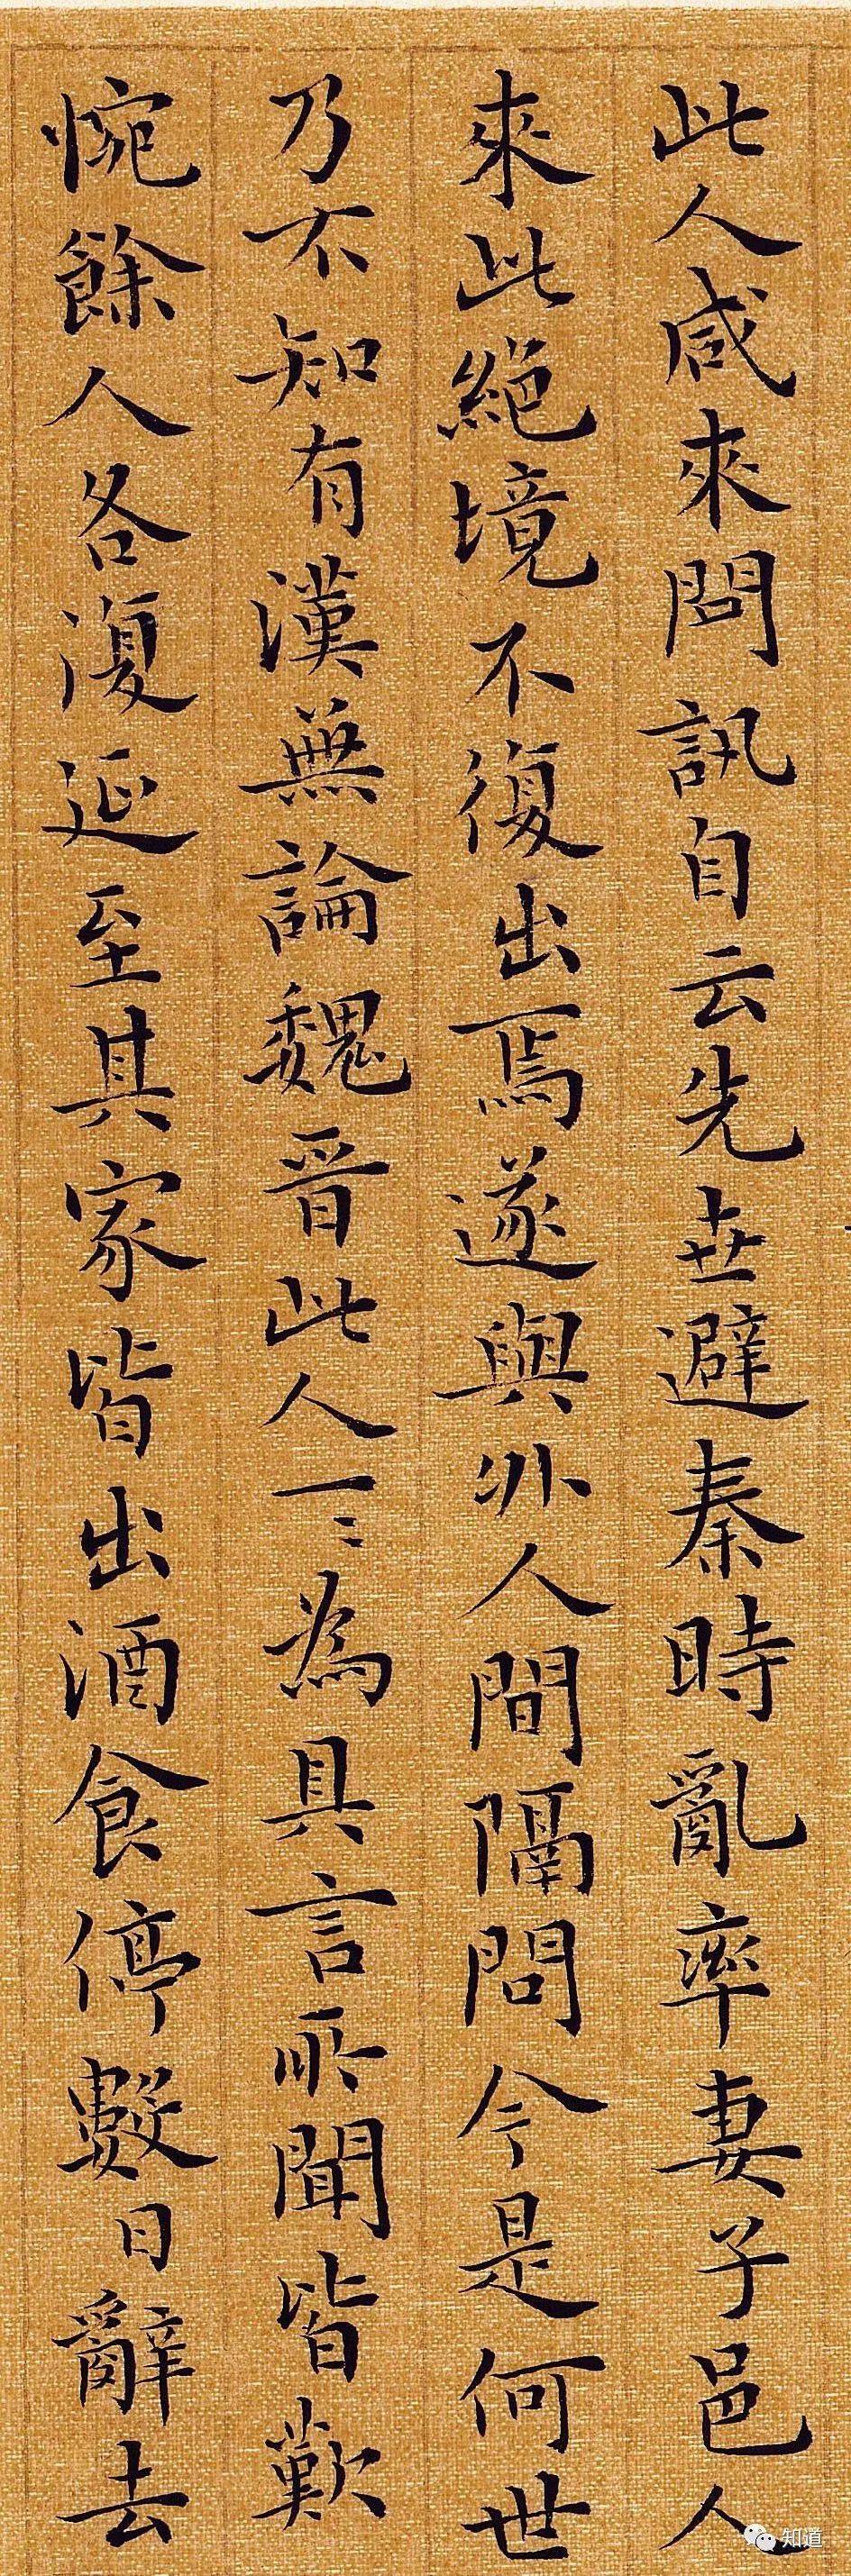 此人咸來問訊自云先世避秦時亂率妻子邑人
來此絕境不復出焉遂與外人間隔問今是何世
乃不知有漢無論魏晉此人一二為具言所聞皆歎
惋餘人各復延至其家皆出酒食停數日辭去
知道